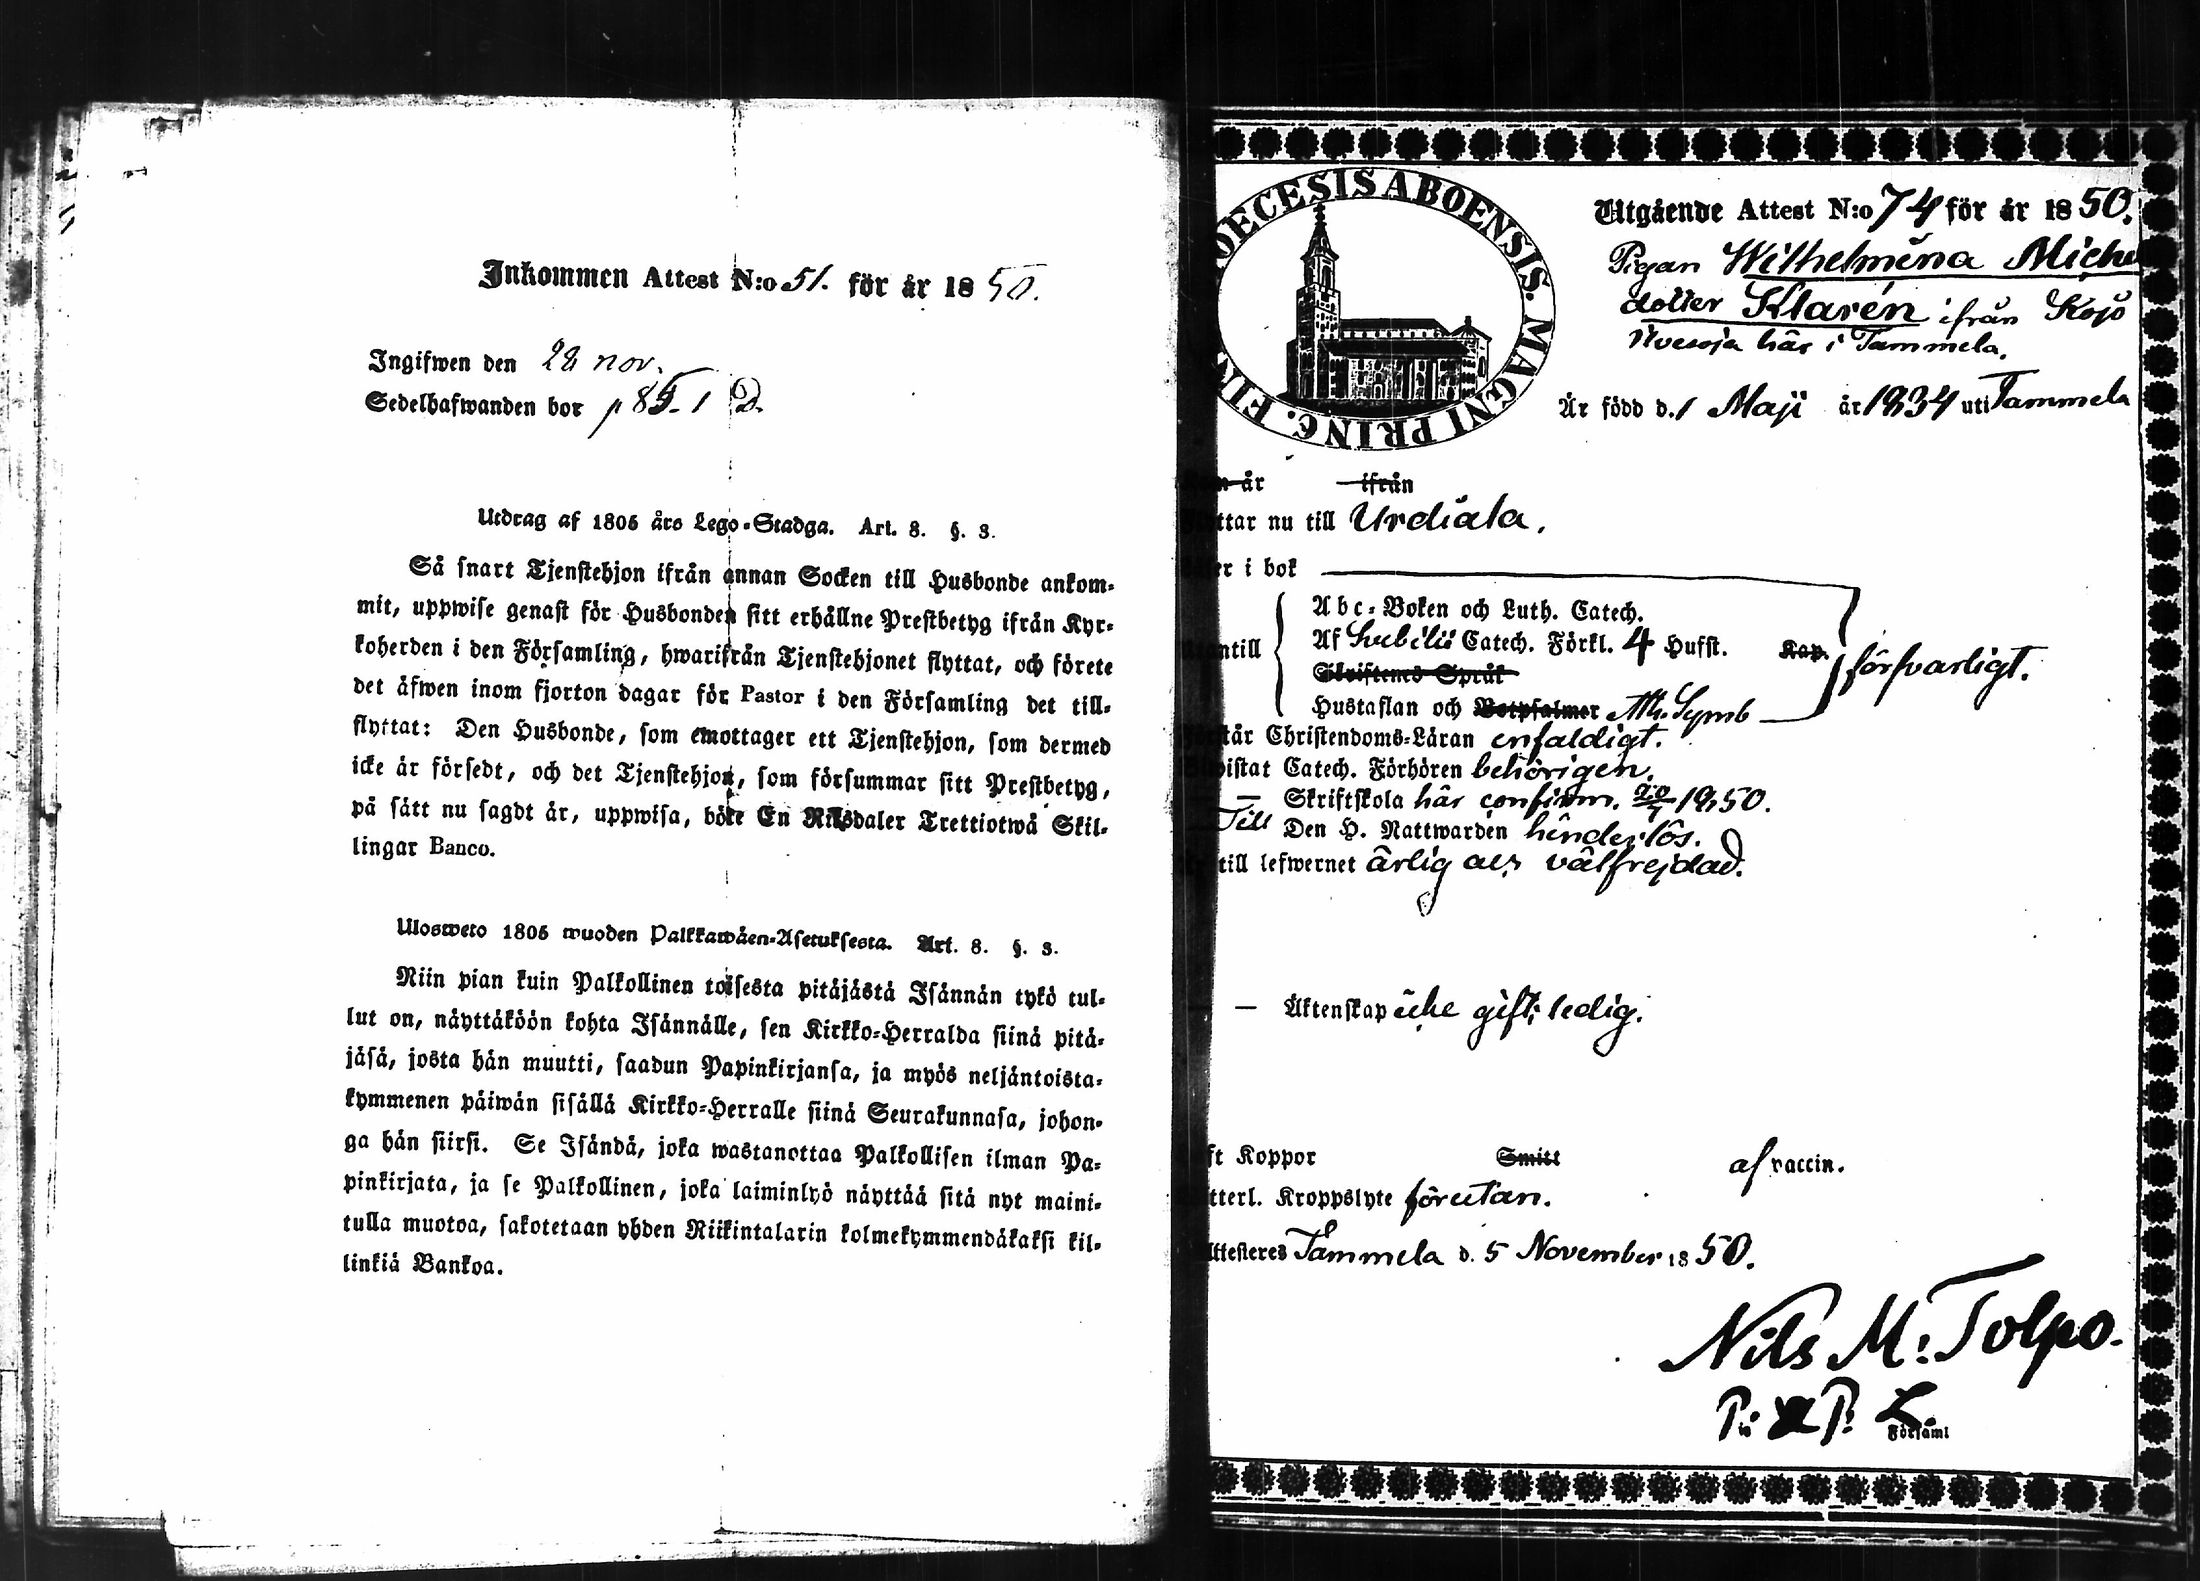 Inkommen Attest N:o 51. för år 1850.
Ingifwen den 28 nov.
Sedelhafwanden bor p 85. 1
Utdrag af 1805 års Lego-Stadga. Art. 8. §. 3.
Så snart Tjenstehjon ifrån annan Socken till Husbonde ankom-
mit, uppwise genast för Husbonden sitt erhållne Prestbetyg ifrån Kyr-
koherden i den Församling, hwarifrån Tjenstehjonet flyttat, och förete
det äfwen inom fjorton dagar för Pastor i den Församling det till-
flyttat: Den Husbonde, som emottager ett Tjenstehjon, som dermed
icke är försedt, och det Tjenstehjon, som försummar sitt Prestbetyg,
på sätt nu sagdt är, uppwisa, böte En Riksdaler Trettiotwå Skil-
lingar Banco.
Ulosweto 1805 wuoden Palkkawäen-Asetuksesta. Art. 8. §. 3.
Niin pian kuin Palkollinen toisesta pitäjästä Isännän tykö tul-
lut on, näyttäköön kohta Isännälle, sen Kirkko-Herralda siinä pitä-
jäsä, josta hän muutti, saadun Papinkirjansa, ja myös neljäntoista-
kymmenen päiwän sisällä Kirkko-Herralle siinä Seurakunnasa, johon-
ga hän siirsi. Se Isändä, joka wastanottaa Palkollisen ilman Pa-
pinkirjata, ja se Palkollinen, joka laiminlyö näyttää sitä nyt maini-
tulla muotoa, sakotetaan yhden Riikintalarin kolmekymmendäkaksi kil-
linkiä Bankoa.
OECESIS ABOENSIS. MAGNI PRINC. FIN
Utgående Attest N:o 74 för år 1850.
Pigan Wilhelmina Miche
dotter Klarén ifrån Kojo
här i Tammela.
Är född d. 1 Maji år 1834 uti Tammela
är ifrån
ttar nu till Urdiala.
er i bok
Abc-Boken och Luth. Catech.
ntill Af Svebilii Catech. Förkl. 4 Hufst. Kap.
Skriftenes Språk
försvarligt.
Hustaflan och Botpsalmer Ath. Symb
står Christendoms-Läran enfaldigt.
vistat Catech. Förhören behörigen.
— Skriftskola här confirm. 20/7 1850.
Till Den H. Nattwarden hinderlös.
till lefwernet ärlig och välfrejdad.
— Äktenskap icke gift; ledig.
ft Koppor Smitt af vaccin.
tterl. Kroppslyte förutan.
ttesteres Tammela d. 5 November 1850.
Nils M. Tolpo.
Församl